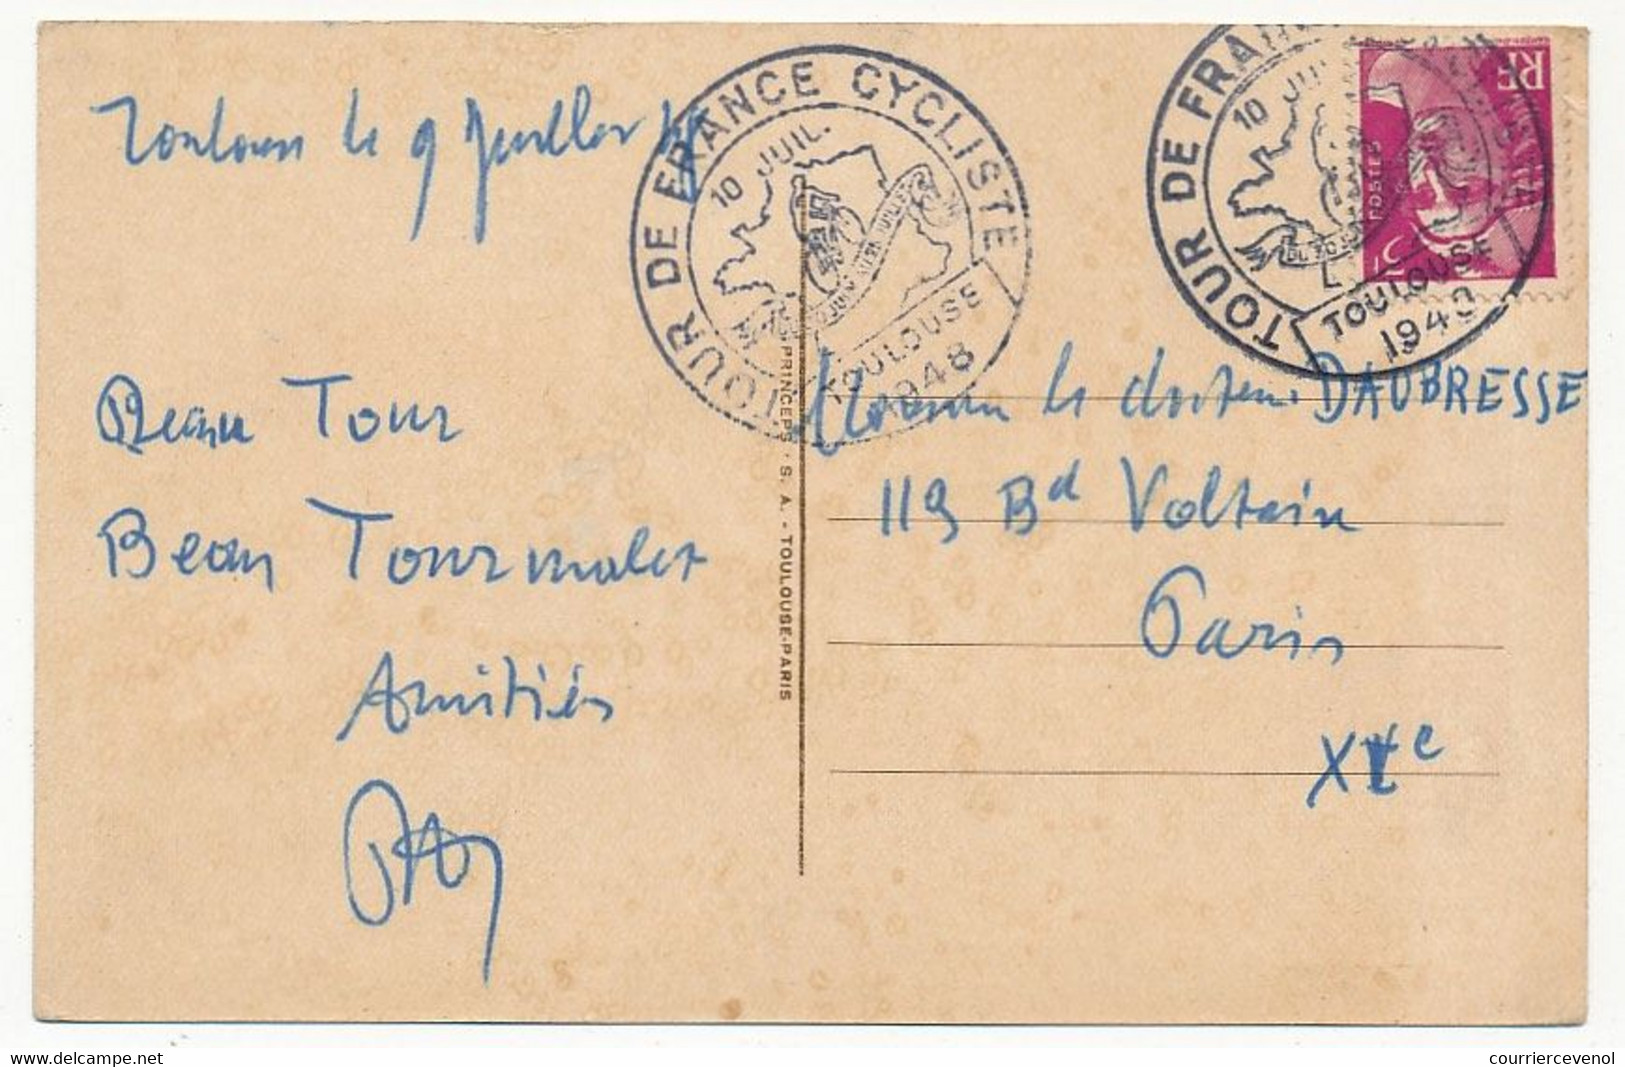 Toulouse le 9 Juillet 48
TOUR DE FRANCE CYCLISTE
10 JUIL.
TOULOUSE
1948
TOUR DE FRANCE
10 JUIL
TOULOUSE
1948
RF
POSTES
Beau Tour
Beau Tourmalet
Amitiés
PRINCEPS. S. A. - TOULOUSE-PARIS
Monsieur le docteur DAUBRESSE
119 Bd Voltaire
Paris
XIe
courriercevenol